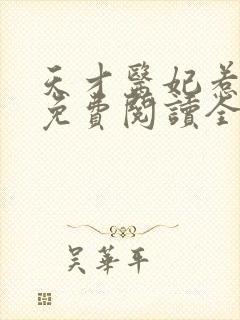 天才醫妃惹
免費閱讀全
吳華平